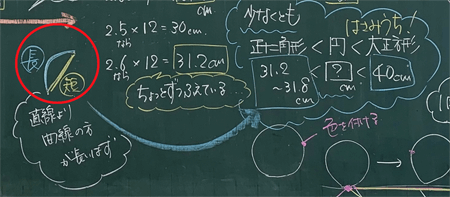 cm
2.5×12=30cm.
なら
2.6×12=31.2cm
なら
ちょっとずつふえている…
長
短
直線より
曲線の方
が長いはず
少なくとも
はさみうち!
正十二角形<円<大正方形
31.2
~31.8
cm
<?<
cm
40cm
色を付ける